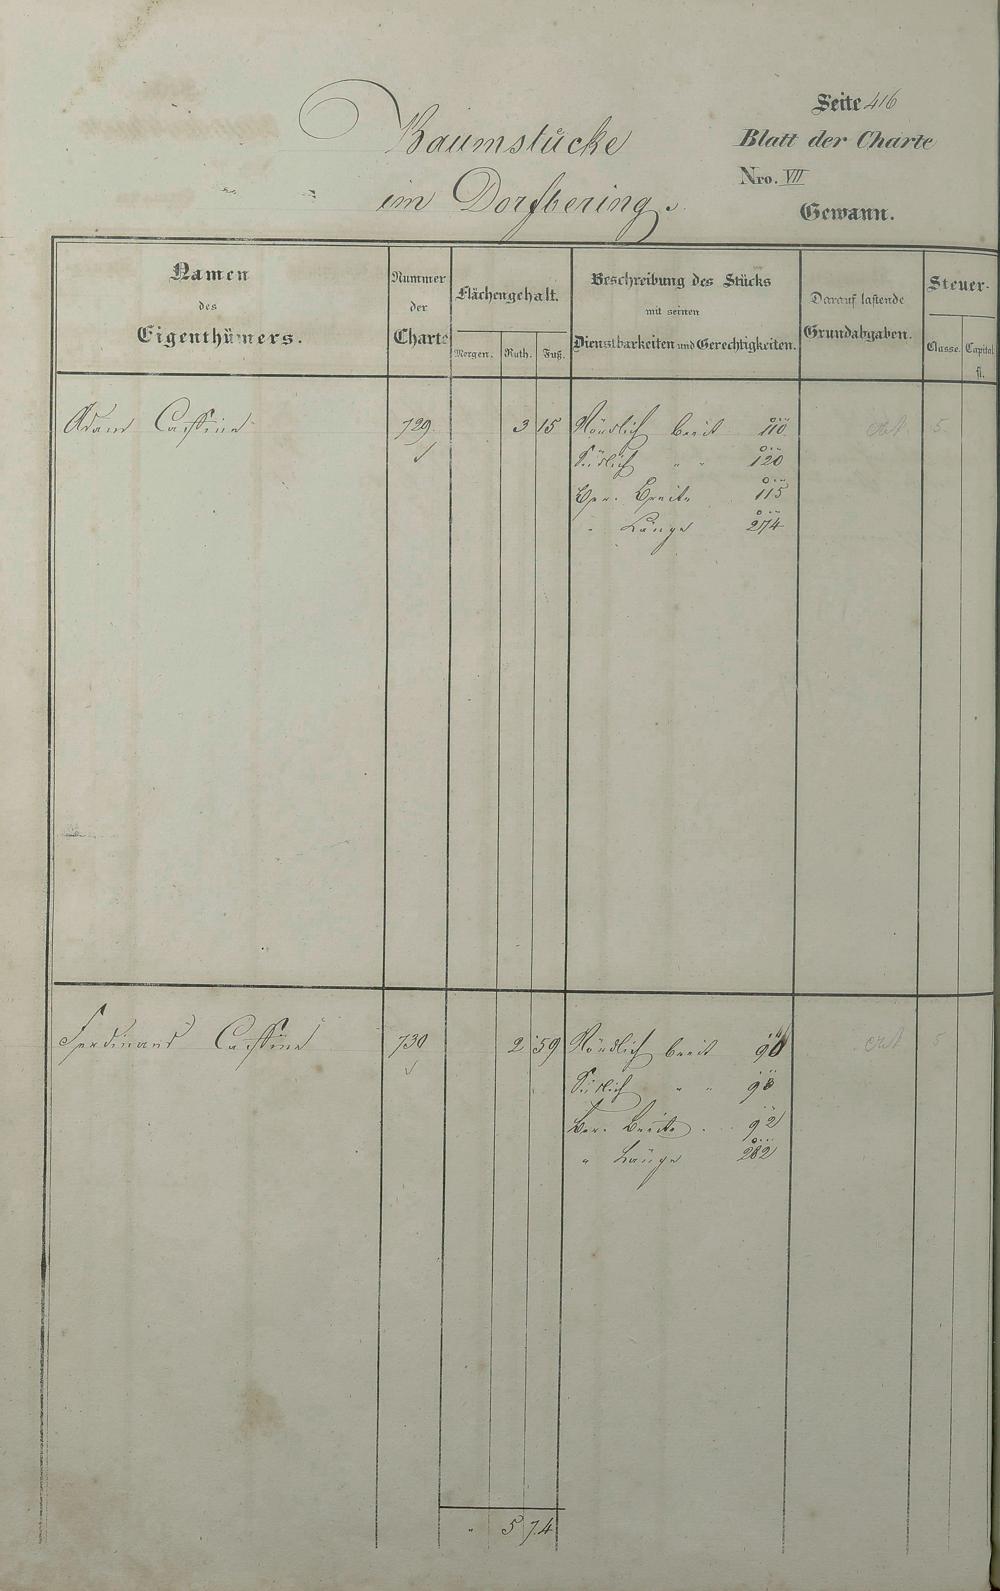 Seite 416
Baumstücke
Blatt der Charte
Nro. VII
im Dorfbering.
Gewann.
Namen
des
Eigenthümers.
Nummer
der
Charte
Flächengehalt.
Morgen. Ruth. Fuß.
Beschreibung des Stücks
mit seinen
Dienstbarkeiten und Gerechtigkeiten.
Darauf lastende
Grundabgaben.
Steuer-
Classe. Capital
fl.
Adam 729 3 15 Nördlich breit 110 5
Südlich " " 120
Ber. Breite 115
" Länge 274
Ferdinand 730 2 59 Nördlich breit 90 5
Südlich " "
Ber. Breite . . 92
" Länge 282
" 5 74